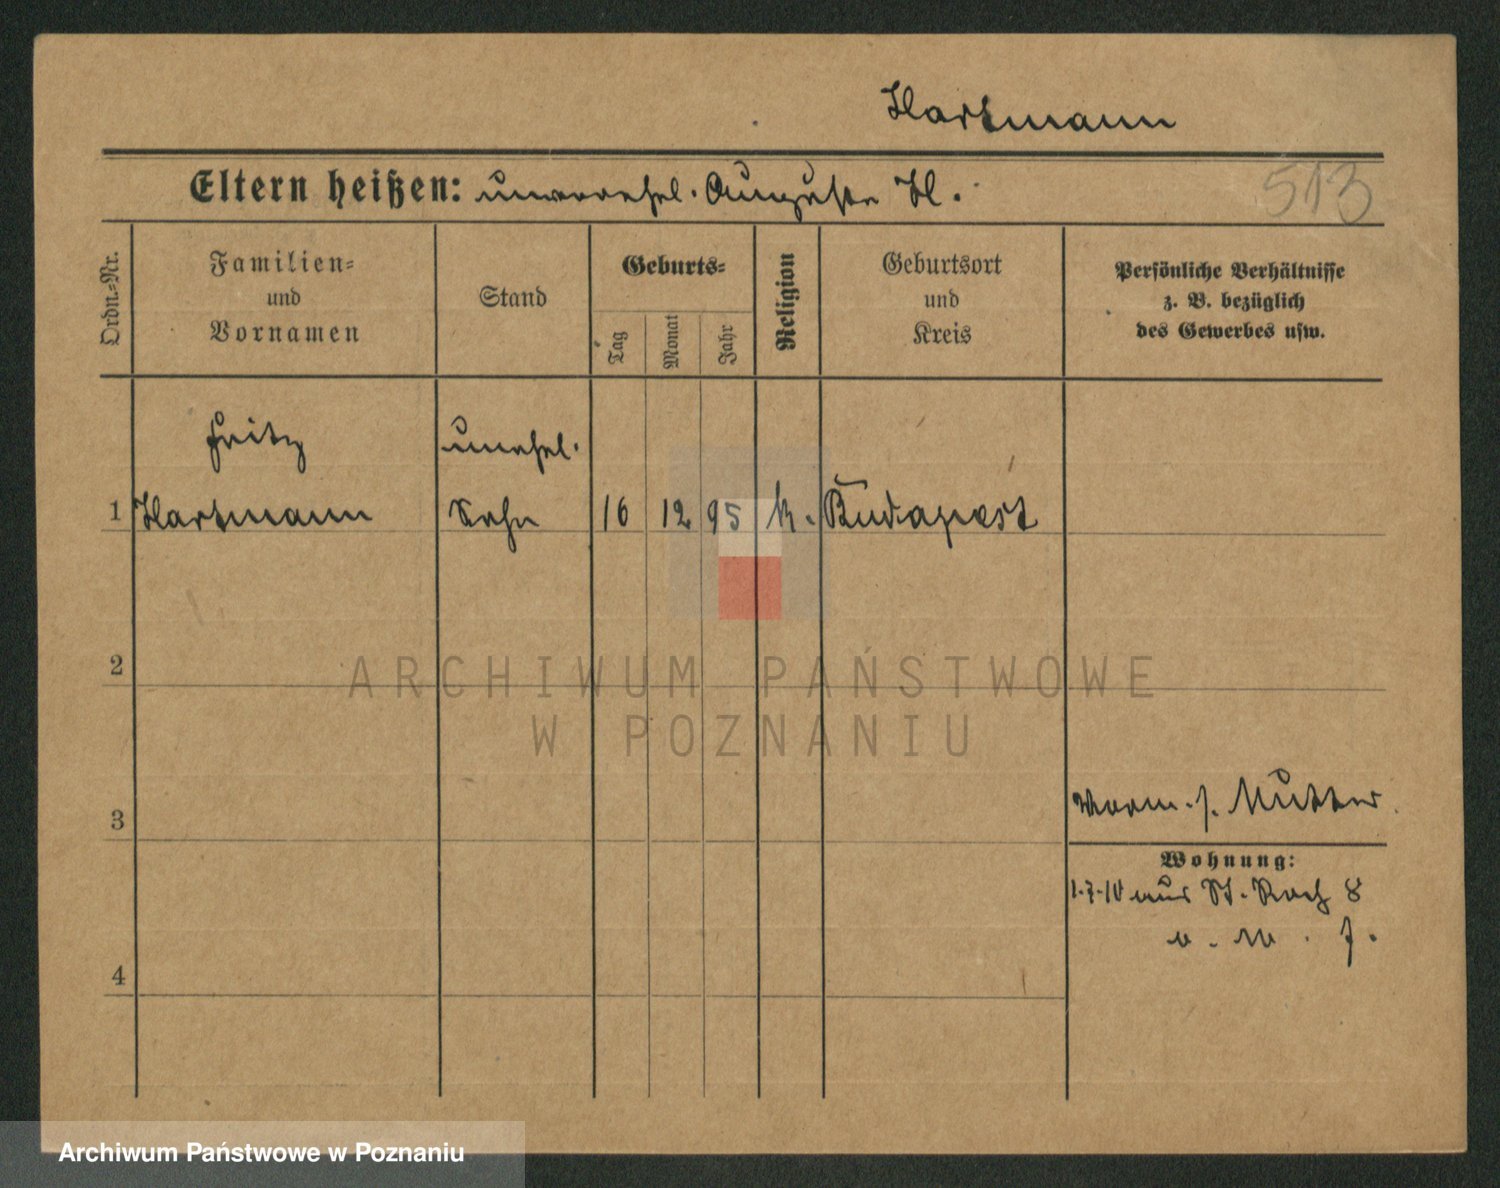 Hartmann
Eltern heißen: unverehel. Auguste H.
513
Ordn.-Nr.
Familien-
und
Vornamen
Stand
Geburts-
Tag
Monat
Jahr
Religion
Geburtsort
und
Kreis
Persönliche Verhältnisse
z. B. bezüglich
des Gewerbes usw.
Fritz
unehel.
1 Hartmann Sohn 16 12 95 k. Budapest
2
ARCHIWUM PAŃSTWOWE
W POZNANIU
3
Vorm. s. Mutter
Wohnung:
1.7.10 aus St. Roch 8
4
Archiwum Państwowe w Poznaniu